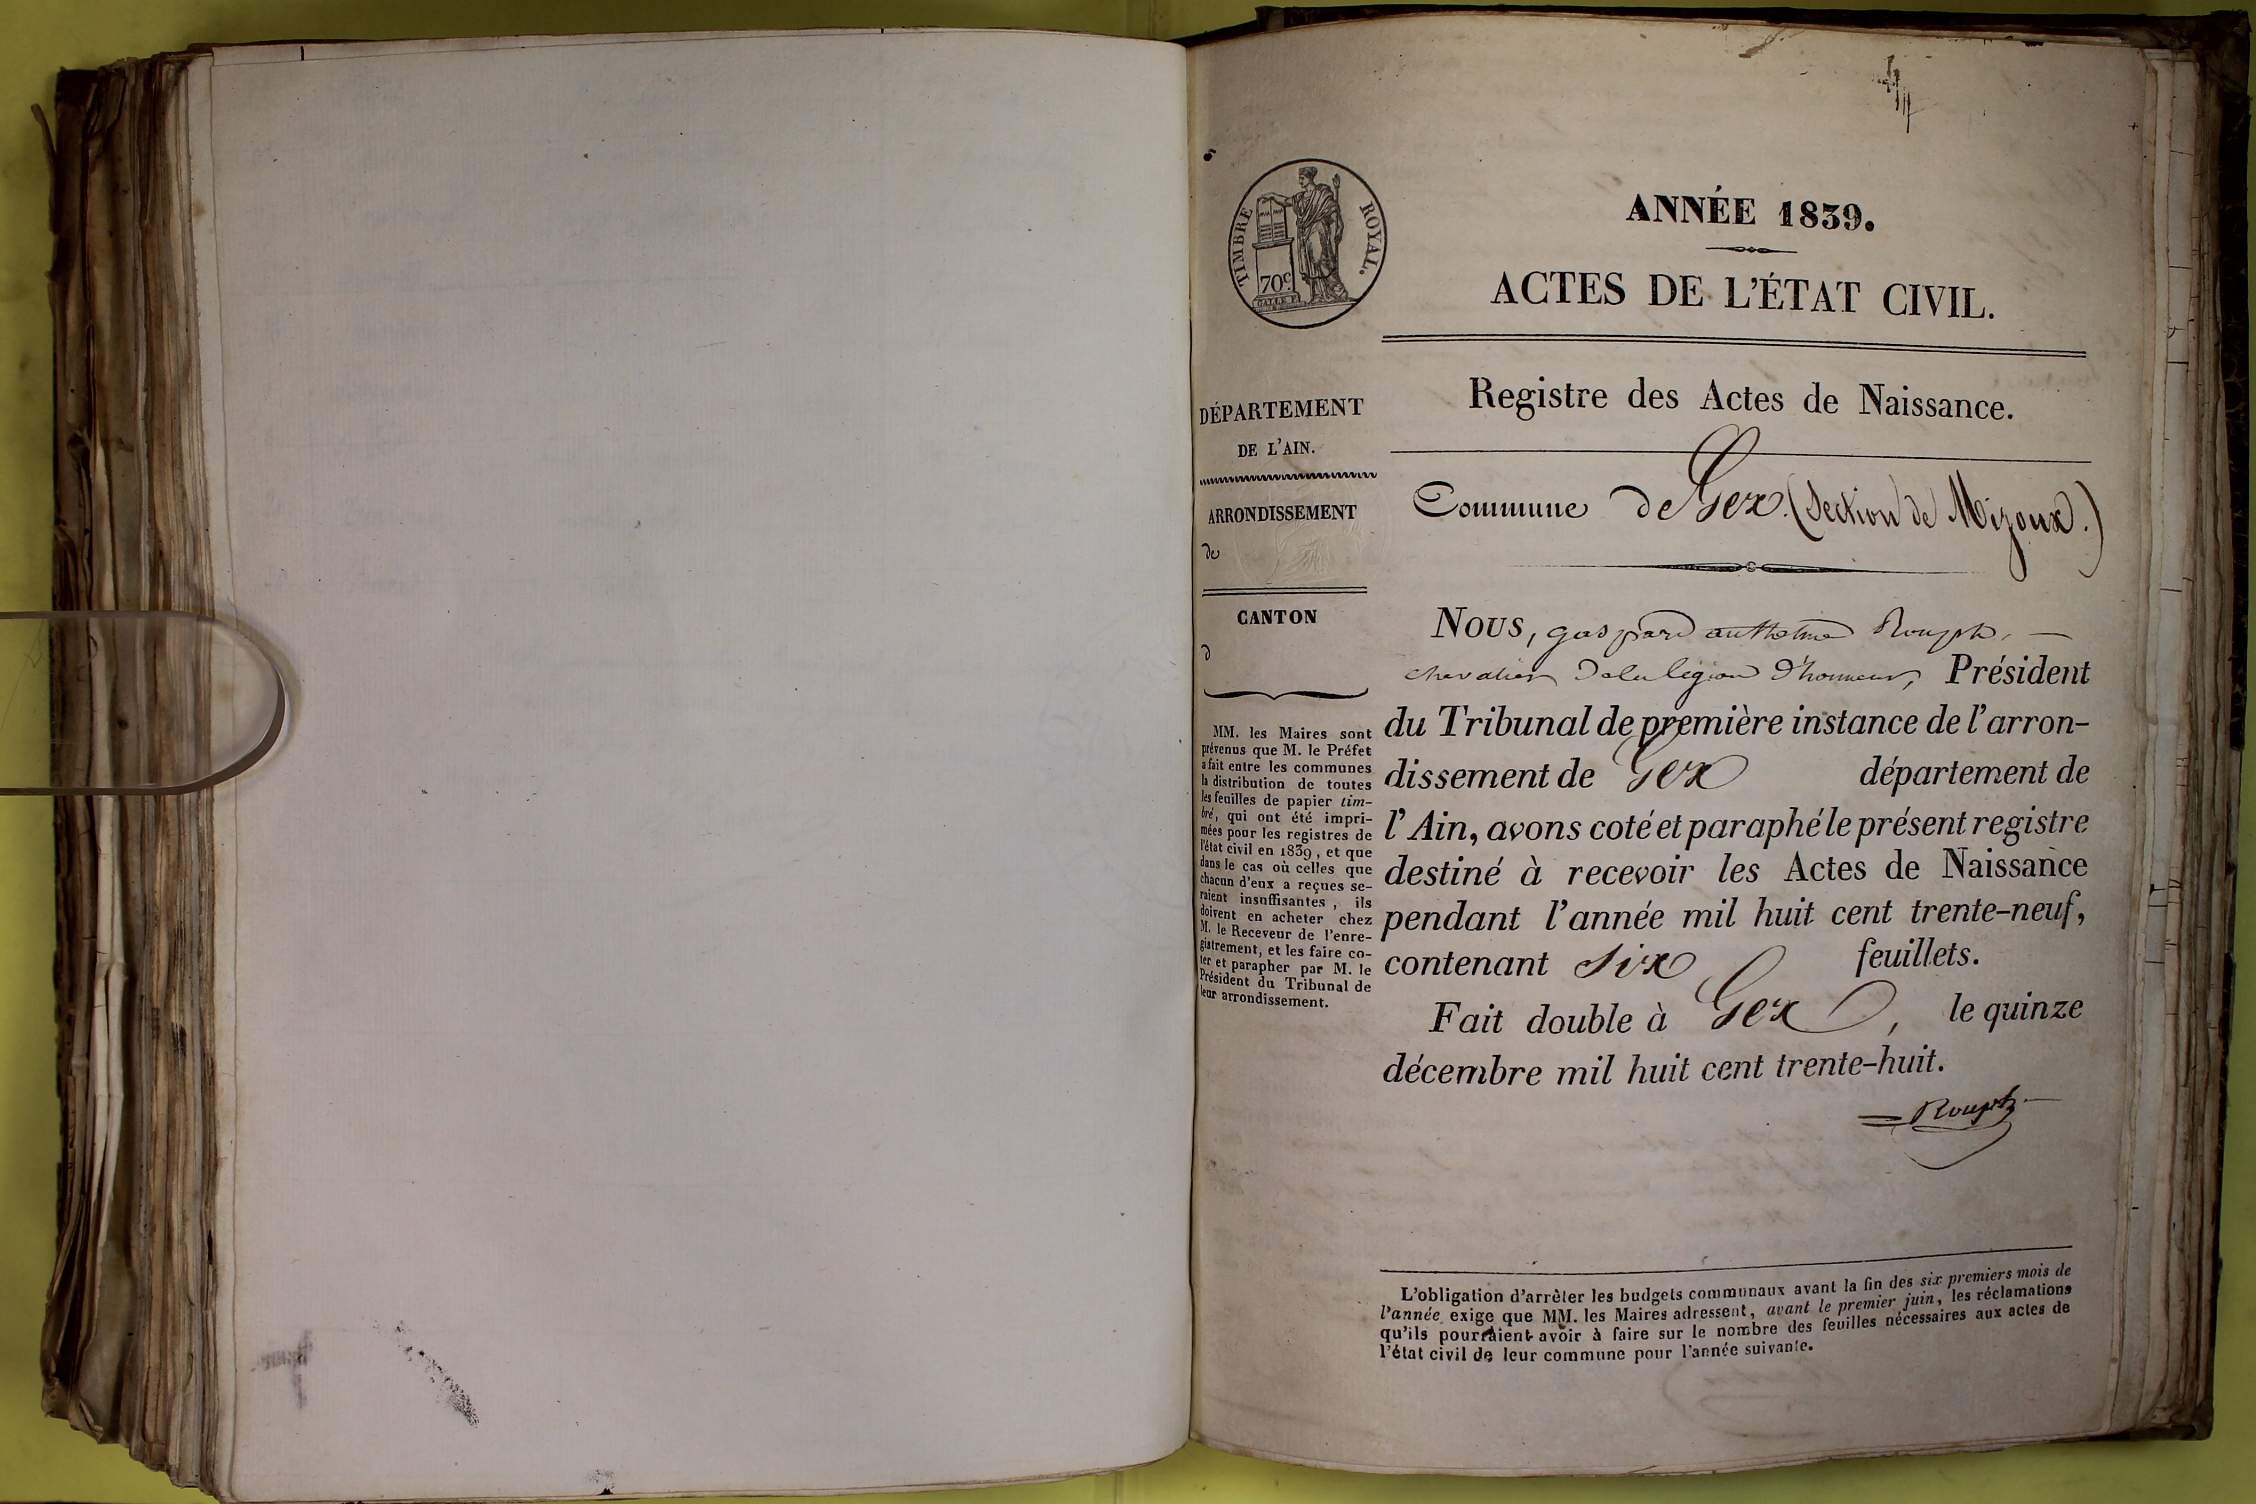 TIMBRE ROYAL.
70c
ANNÉE 1839.
ACTES DE L'ÉTAT CIVIL.
Registre des Actes de Naissance.
Commune de Gex. (Section de Mijoux.)
DÉPARTEMENT
DE L'AIN.
ARRONDISSEMENT
de
CANTON
d
MM. les Maires sont
prévenus que M. le Préfet
a fait entre les communes
la distribution de toutes
les feuilles de papier tim-
bré, qui ont été impri-
mées pour les registres de
l'état civil en 1839, et que
dans le cas où celles que
chacun d'eux a reçues se-
raient insuffisantes, ils
doivent en acheter chez
M. le Receveur de l'enre-
gistrement, et les faire co-
ter et parapher par M. le
Président du Tribunal de
leur arrondissement.
Nous, gaspard anthelme Rouph,
chevalier de la légion d'honneur, Président
du Tribunal de première instance de l'arron-
dissement de Gex département de
l'Ain, avons coté et paraphé le présent registre
destiné à recevoir les Actes de Naissance
pendant l'année mil huit cent trente-neuf,
contenant six feuillets.
Fait double à Gex, le quinze
décembre mil huit cent trente-huit.
Rouph
L'obligation d'arrêter les budgets communaux avant la fin des six premiers mois de
l'année exige que MM. les Maires adressent, avant le premier juin, les réclamations
qu'ils pourraient avoir à faire sur le nombre des feuilles nécessaires aux actes de
l'état civil de leur commune pour l'année suivante.